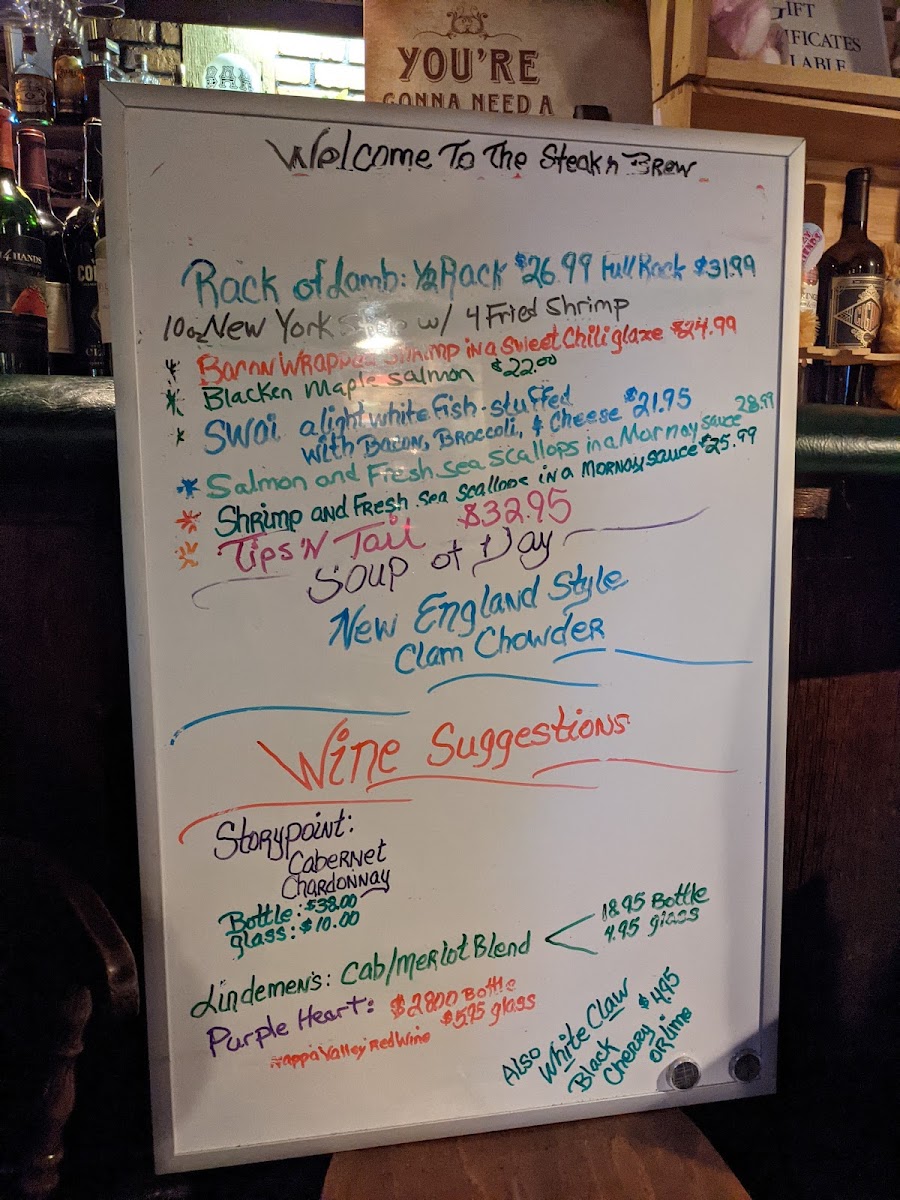 YOU'RE
GONNA NEED A
GIFT
IFICATES
LABLE
4 HANDS
Welcome To The Steak n Brew
Rack of Lamb: 1/2 Rack $26.99 Full Rack $31.99
10oz New York Strip w/ 4 Fried Shrimp
* Bacon Wrapped Shrimp in a Sweet Chili glaze $24.99
* Blacken Maple Salmon $22.00
* SWai a light white Fish - stuffed
with Bacon, Broccoli, & Cheese $21.95
* Salmon and Fresh sea scallops in a Mornay sauce 28.99
* Shrimp and Fresh sea scallops in a Mornay sauce $25.99
* Tips 'N Tail $32.95
Soup of Day
New England Style
Clam Chowder
Wine Suggestions
Storypoint:
Cabernet
Chardonnay
Bottle: $38.00
glass: $10.00
Lindemen's: Cab/Merlot Blend
18.95 Bottle
4.95 glass
Purple Heart: $28.00 Bottle
$5.95 glass
Nappa Valley Red Wine
Also White Claw $4.95
Black Cherry
or Lime